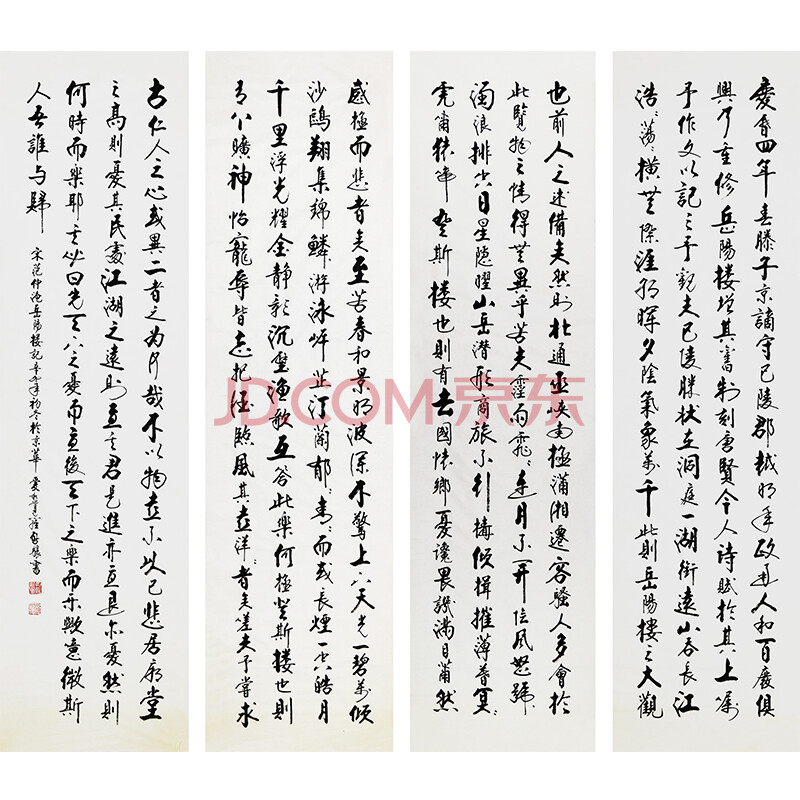 慶曆四年春滕子京謫守巴陵郡越明年政通人和百廢俱
興乃重修岳陽楼增其舊制刻唐賢今人詩賦於其上屬
予作文以記之予觀夫巴陵勝状在洞庭一湖銜遠山吞長江
浩〻蕩〻横無際涯朝暉夕陰氣象萬千此則岳陽樓之大觀
也前人之述備矣然則北通巫峡南極瀟湘遷客騷人多會於
此覽物之情得無異乎若夫霪雨霏〻連月不開陰風怒號
濁浪排空日星隐曜山岳潜形商旅不行檣傾楫摧薄暮冥〻
虎嘯猿啼登斯樓也則有去國懷鄉憂讒畏譏满目蕭然
感極而悲者矣至若春和景明波瀾不驚上下天光一碧萬頃
沙鷗翔集錦鱗游泳岸芷汀蘭郁〻青〻而或長煙一空皓月
千里浮光耀金静影沉璧漁歌互答此樂何極登斯楼也則
有心曠神怡寵辱皆忘把酒臨風其喜洋〻者矣嗟夫予嘗求
古仁人之心或異二者之为何哉不以物喜不以己悲居廟堂
之高則憂其民處江湖之遠則憂其君是進亦憂退亦憂然則
何時而樂耶其必曰先天下之憂而憂後天下之樂而樂歟噫微斯
人吾誰与歸
宋范仲淹岳陽樓記年初冬於京華書
JD.COM 京东